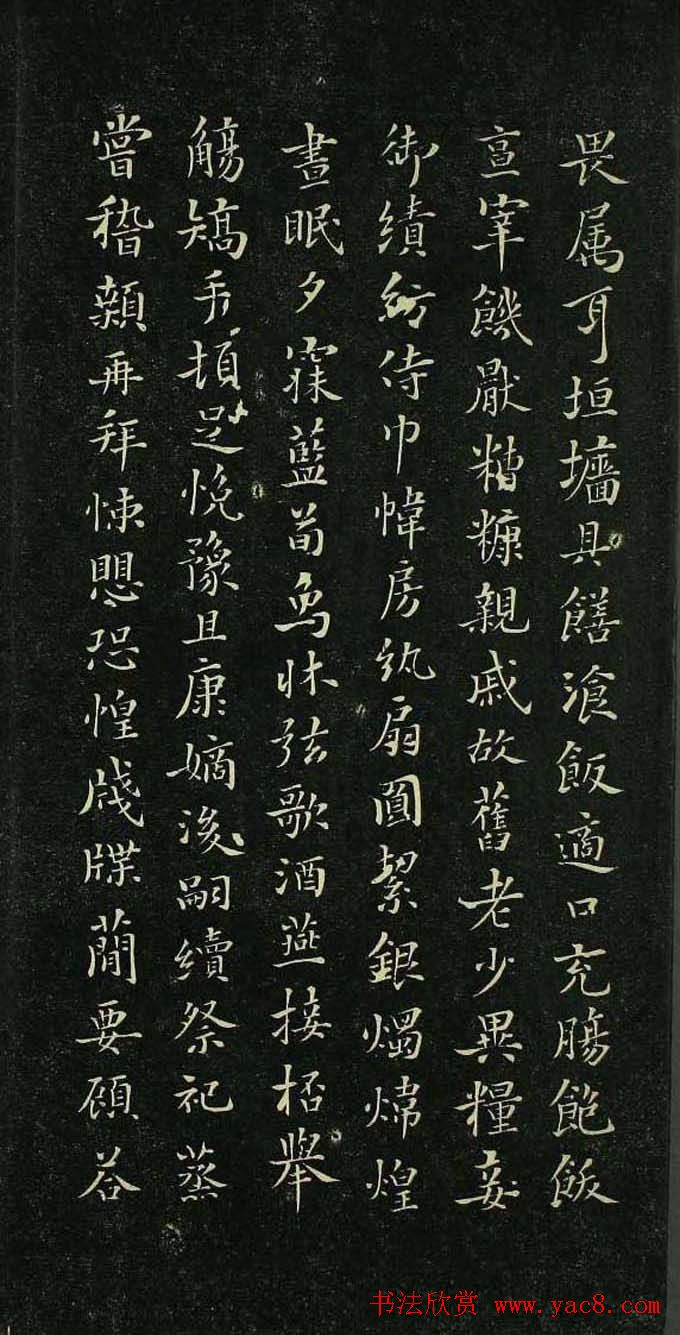 畏属耳垣墙具饍湌飯適口充膓飽飫
亯宰饑厭糟糠親戚故舊老少異糧妾
御績紡侍巾幃房紈扇圓絜銀燭煒煌
晝眠夕寐藍笋象牀弦歌酒燕接桮舉
觴矯手頓足悅豫且康嫡後嗣續祭祀蒸
嘗稽顙再拜悚愳恐惶牋牒蕳要顾荅
书法欣赏 www.yac8.com